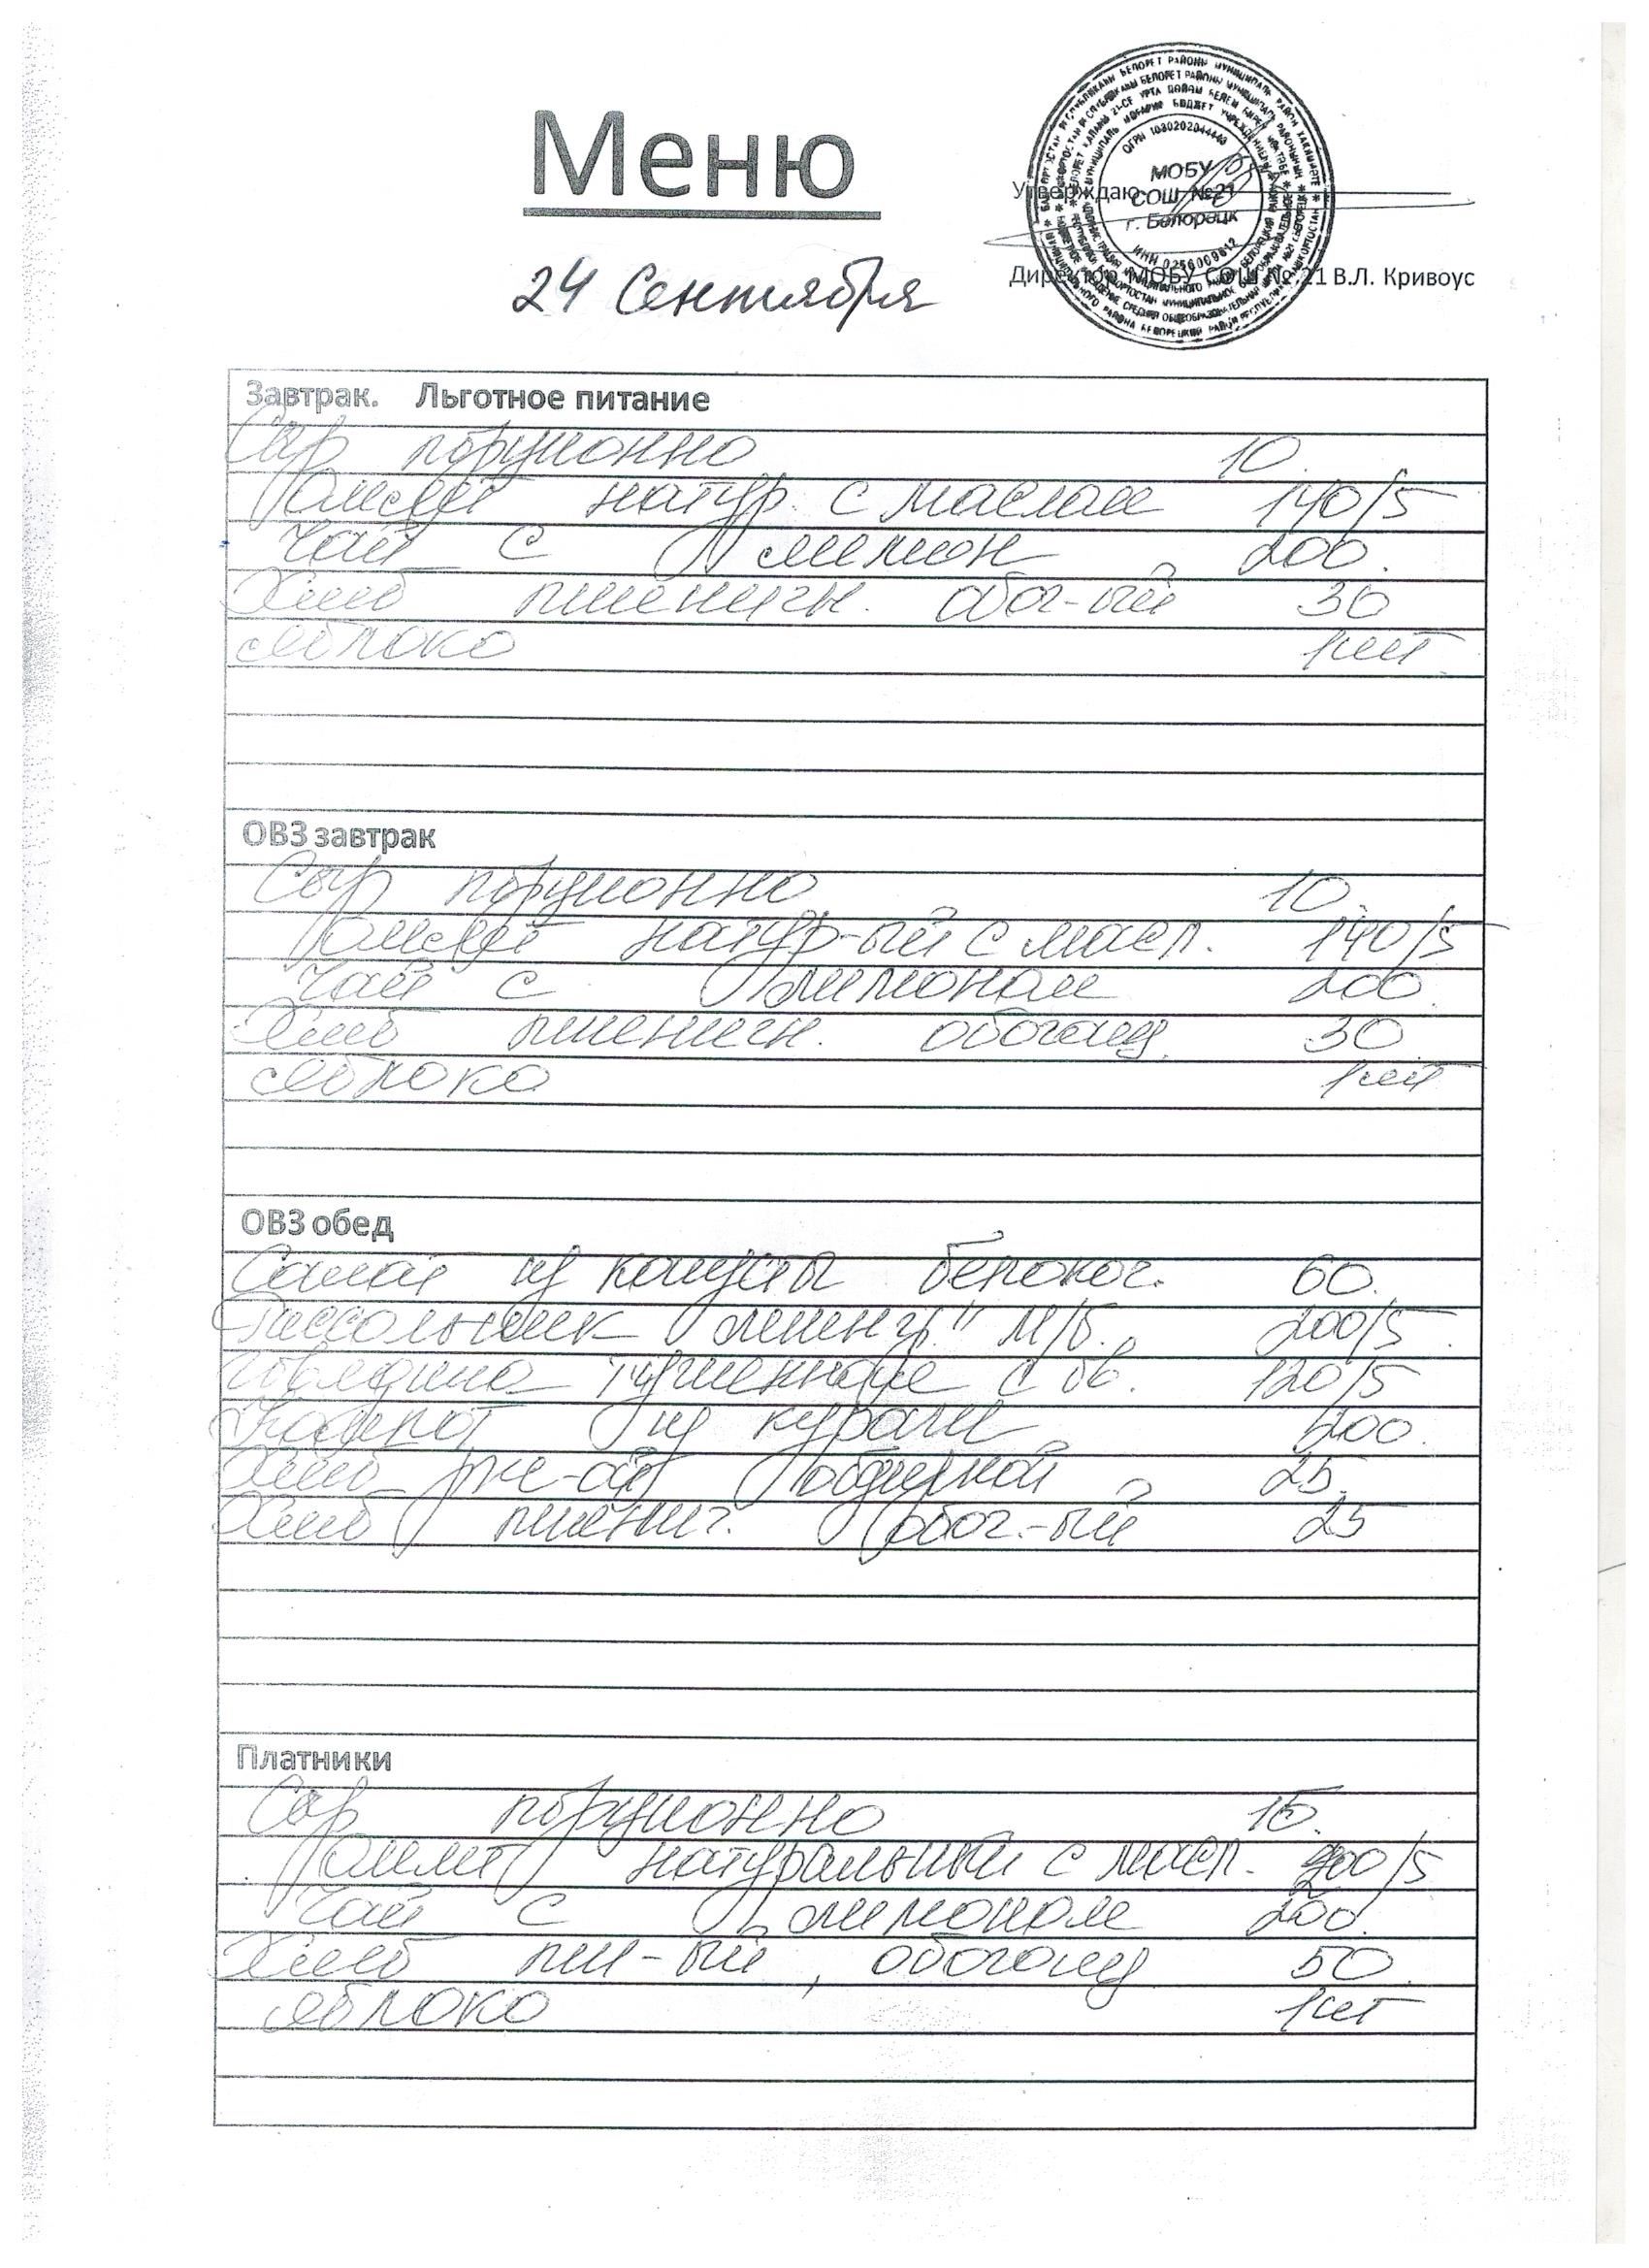 Меню
24 Сентября
МОБУ
Утверждаю
СОШ №21
г. Белорецк
ОГРН 1030202044440
ИНН 0256009812
Директор МОБУ СОШ № 21 В.Л. Кривоус
Завтрак. Льготное питание
Сыр порционно 10.
Омлет натур. с маслом 140/5
Чай с лимон 200.
Хлеб пшеничн. обог-ый 30
яблоко 1шт.
ОВЗ завтрак
Сыр порционно 10.
Омлет натур-ый с масл. 140/5
Чай с лимоном 200.
Хлеб пшеничн. обогащ. 30
яблоко 1шт
ОВЗ обед
Салат из капусты белокоч. 60.
Рассольник ленингр." м/б. 200/5.
Говядина тушенная с ов. 120/5
Компот из кураги 200.
Хлеб рж-ой обдирной 25.
Хлеб пшенич. обог.-ый 25
Платники
Сыр порционно 15.
Омлет натуральный с масл. 200/5
Чай с лимоном 200.
Хлеб пш-ый, обогащ 50.
яблоко 1шт